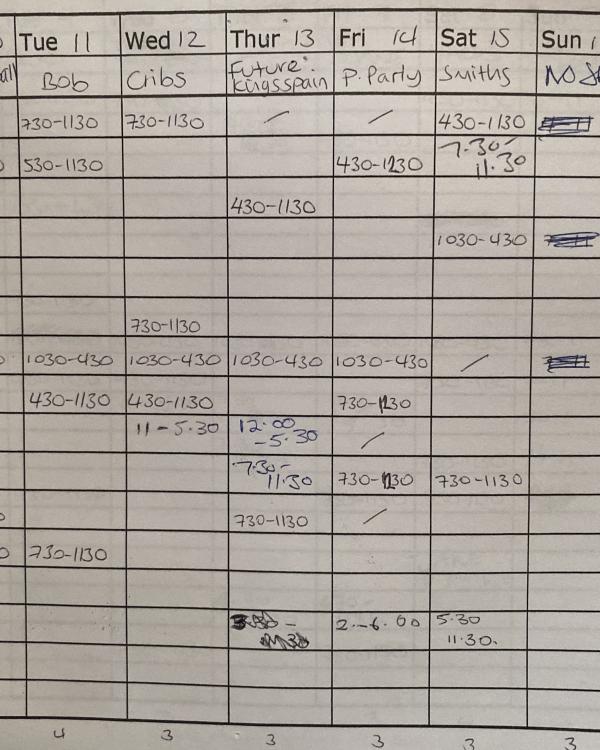 Tue 11 Wed 12 Thur 13 Fri 14 Sat 15 Sun
Bob Cribs Future: Kingsspain P. Party Smiths NO
730-1130 730-1130 / / 430-1130
530-1130 430-1230 7.30-
11.30
430-1130
1030-430
730-1130
1030-430 1030-430 1030-430 1030-430 /
430-1130 430-1130 730-1230
11-5.30 12.00
-5.30 /
7.30-
11.30 730-1230 730-1130
730-1130 /
730-1130
2.-6.00 5.30
11.30.
4 3 3 3 3 3